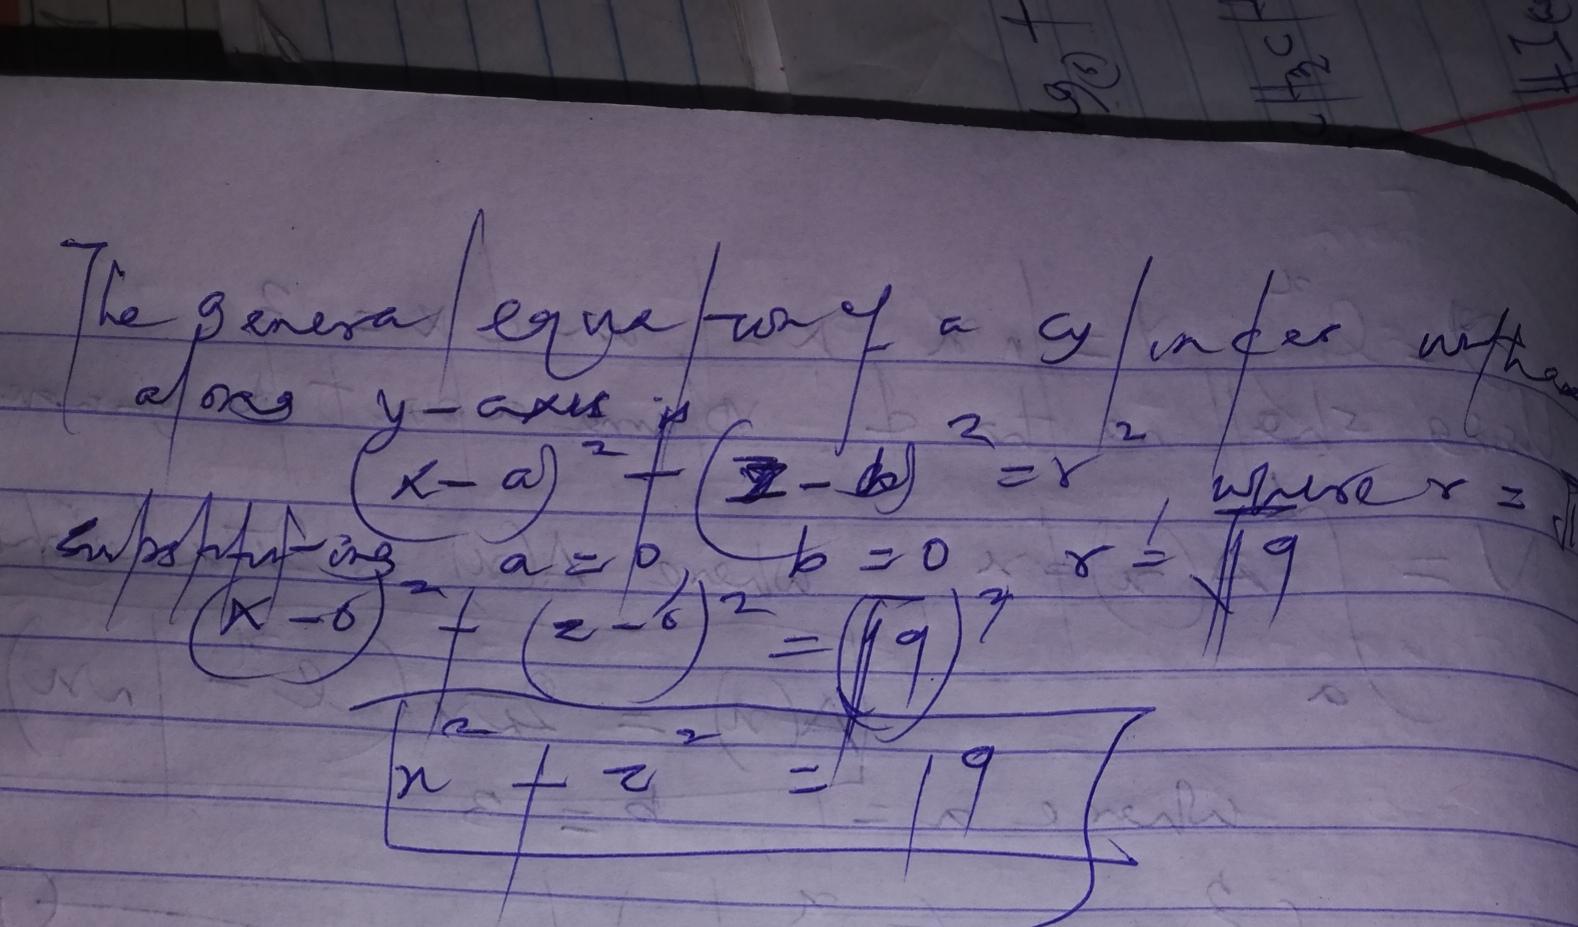 The general equation of a cylinder with
along y-axis is
(x-a)² + (z-b)² = r², where r =
Substituting a = 0, b = 0 r = √19
(x-0)² + (z-0)² = (√19)²
x² + z² = 19